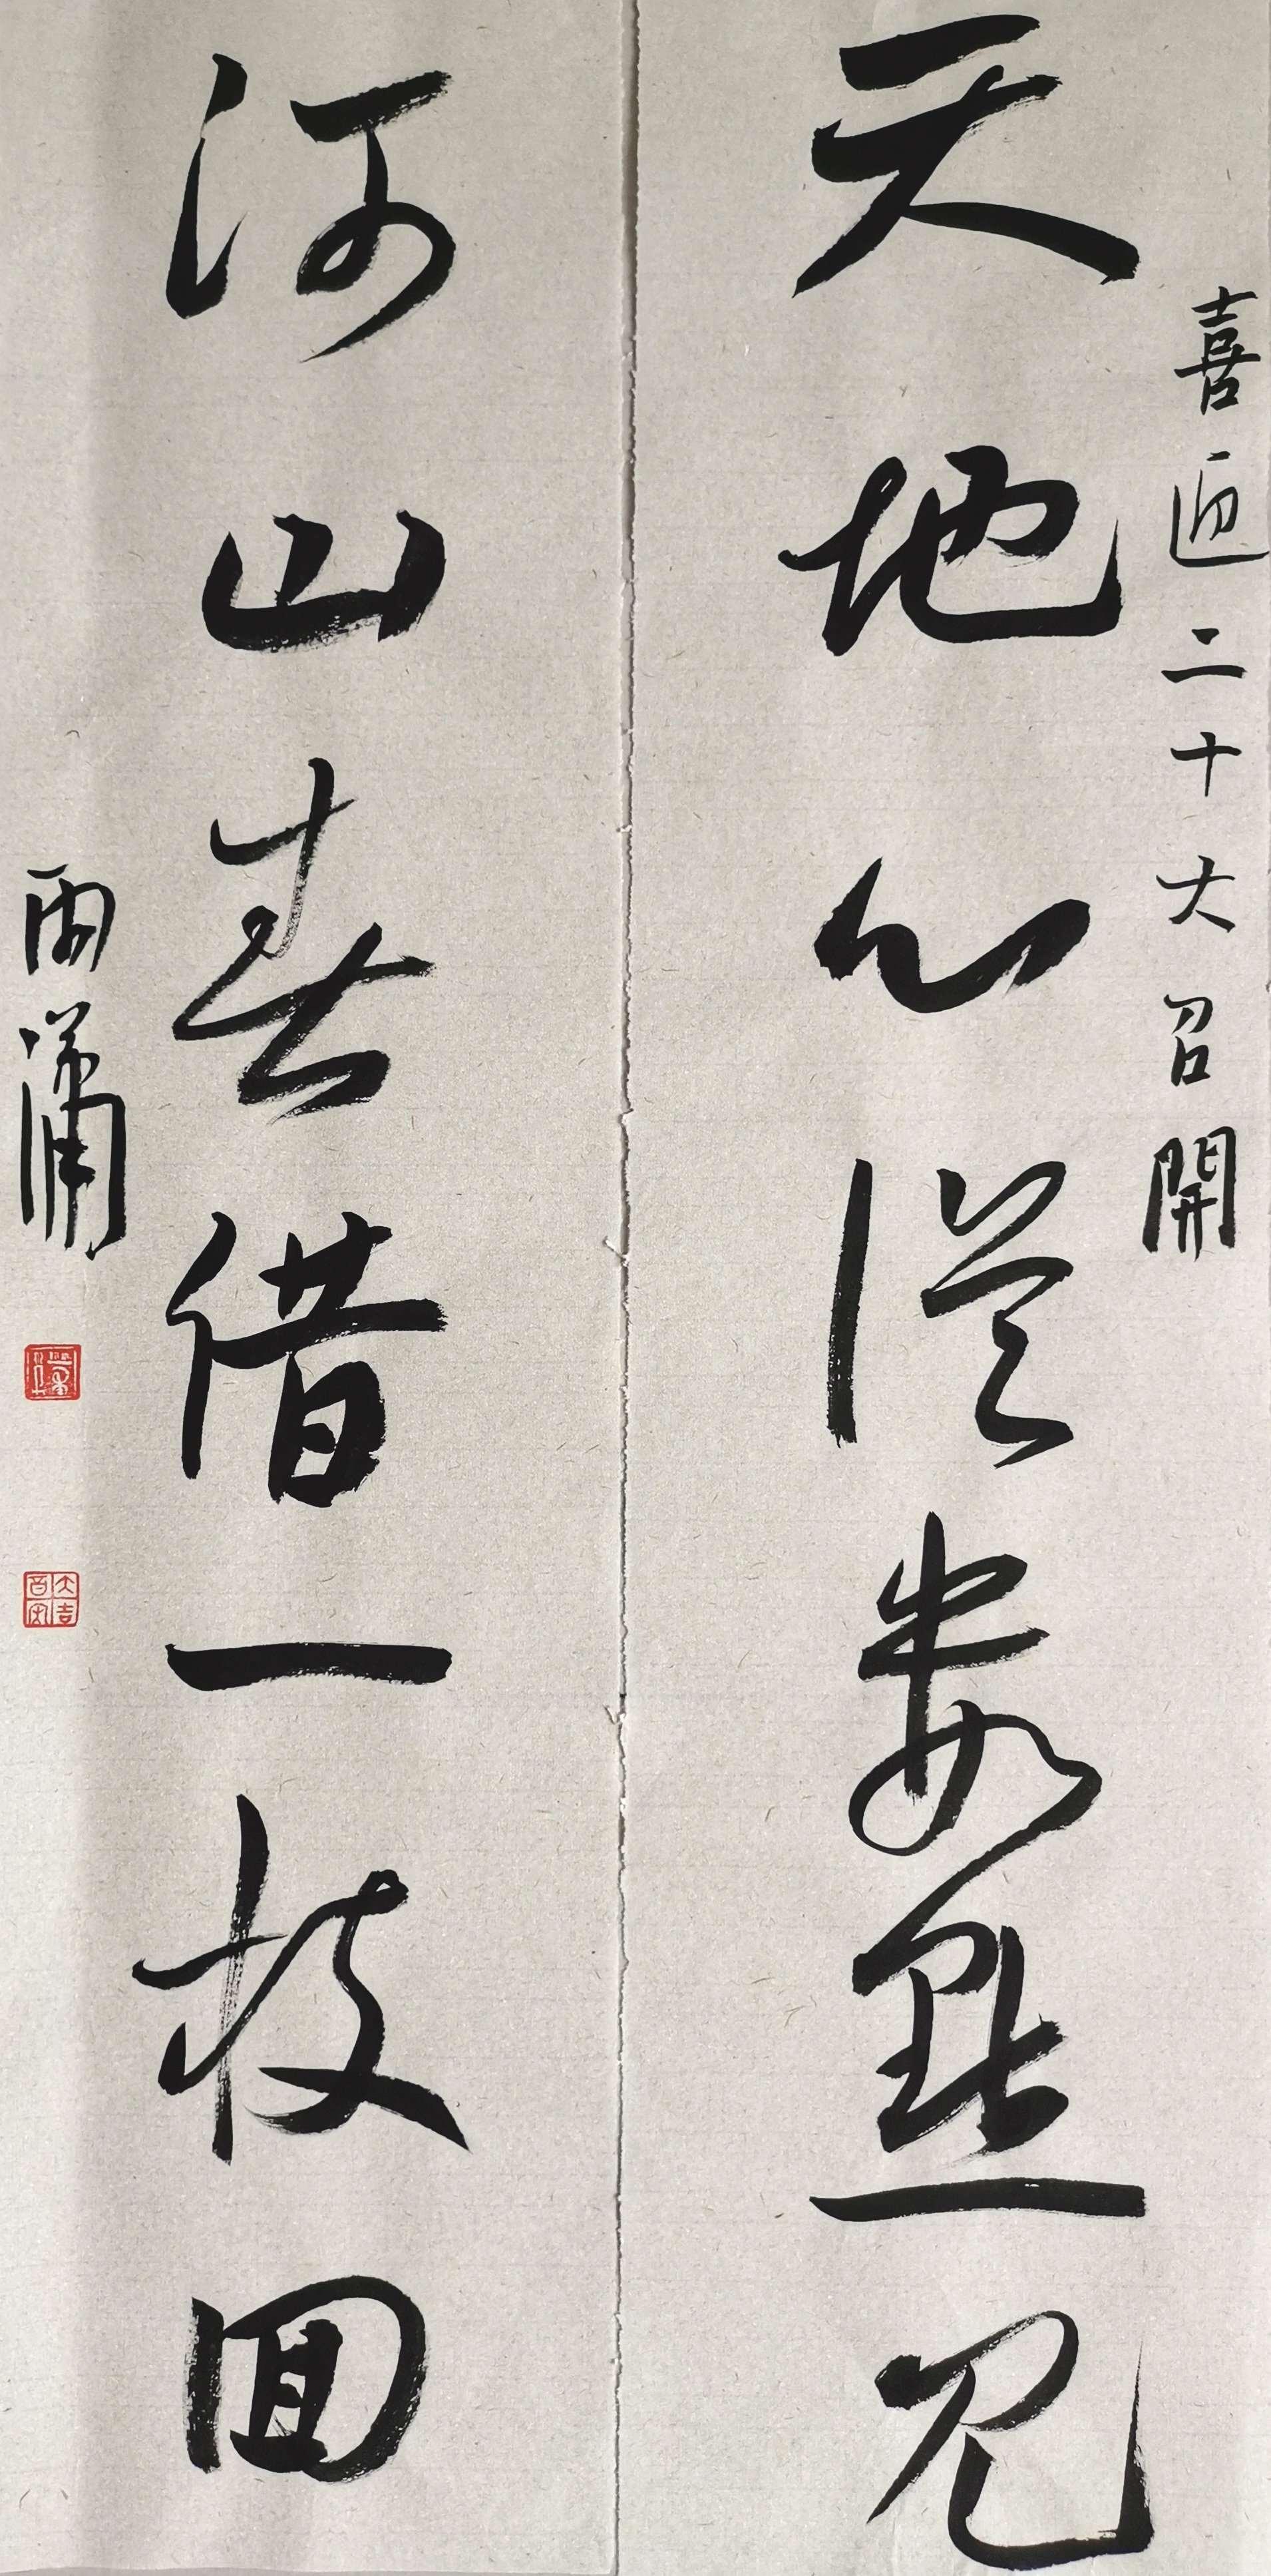 喜迎二十大召開
天地心從數點見
河山春借一枝回
雨瀟
大吉